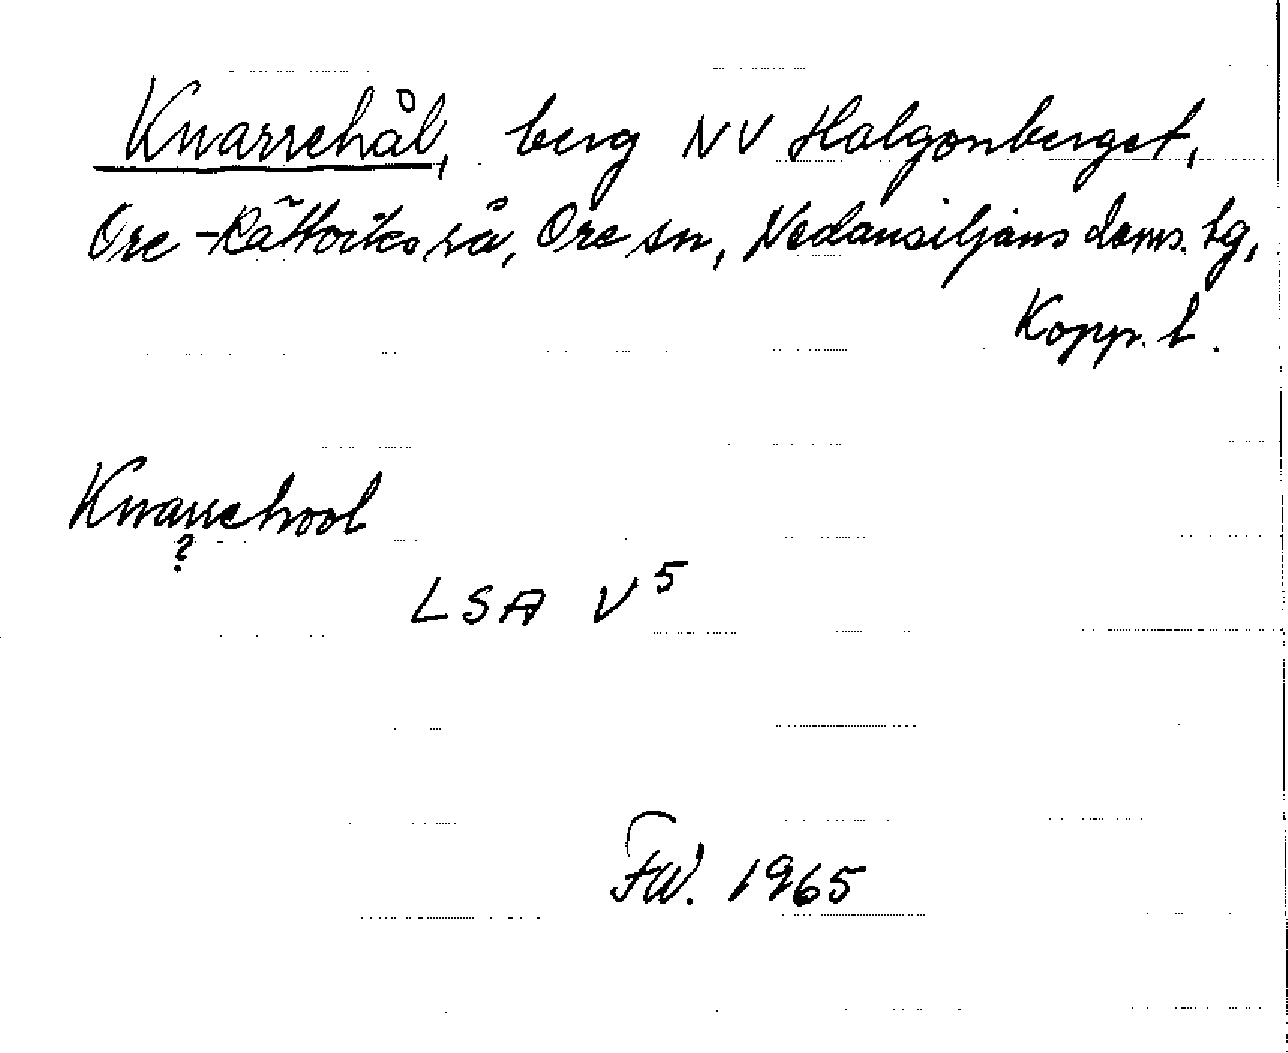 Knarrehål, berg NV Halgonberget,
Ore-Rättviks rå, Ore sn, Nedansiljans doms. tg,
Kopp. l.
Knarrehool
?
LSA V5
FW. 1965